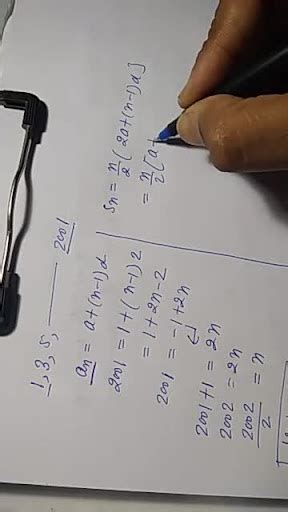 1, 3, 5, ——— 2001
an = a+(n-1)d
2001 = 1+(n-1)2
= 1+2n-2
2001 = -1+2n
2001+1 = 2n
2002 = 2n
2002/2 = n
Sn = n/2 (2a+(n-1)d]
= n/2 [a+